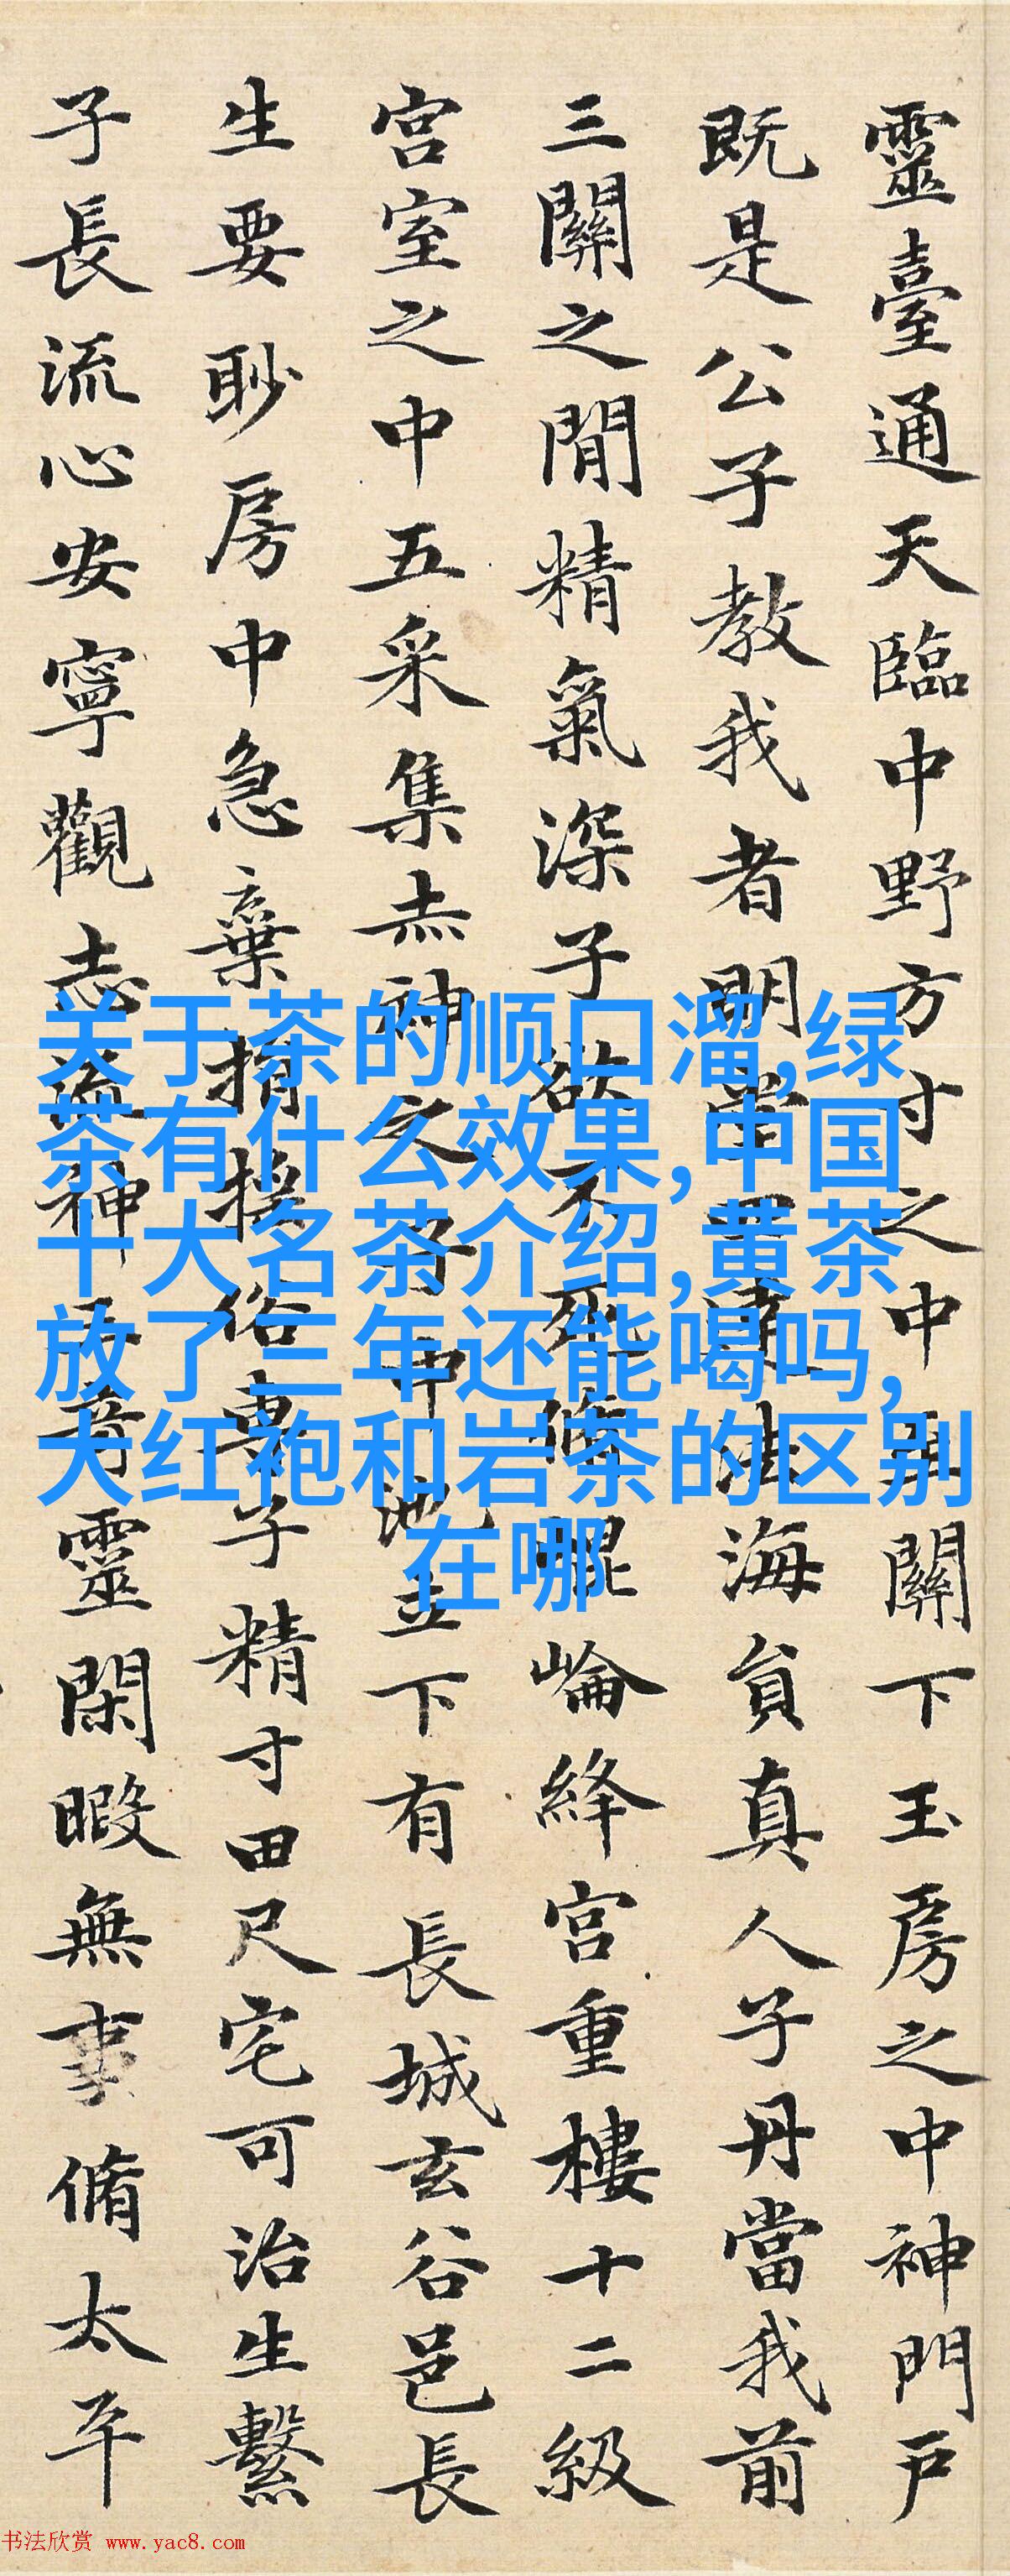 靈臺通天臨中野方寸之中至關下玉房之中神門戶
既是公子教我者明堂四達法海員真人子丹當我前
三關之閒精氣深子欲不死脩崐崘絳宮重樓十二級
宮室之中五采集赤神之子中池立下有長城玄谷邑長
生要眇房中急棄捐搖俗專子精寸田尺宅可治生繫
子長流心安寧觀志流神三奇靈閑暇無事脩太平
关于茶的顺口溜,绿
茶有什么效果,中国
十大名茶介绍,黄茶
放了三年还能喝吗,
大红袍和岩茶的区别
在哪
书法欣赏 www.yac8.com